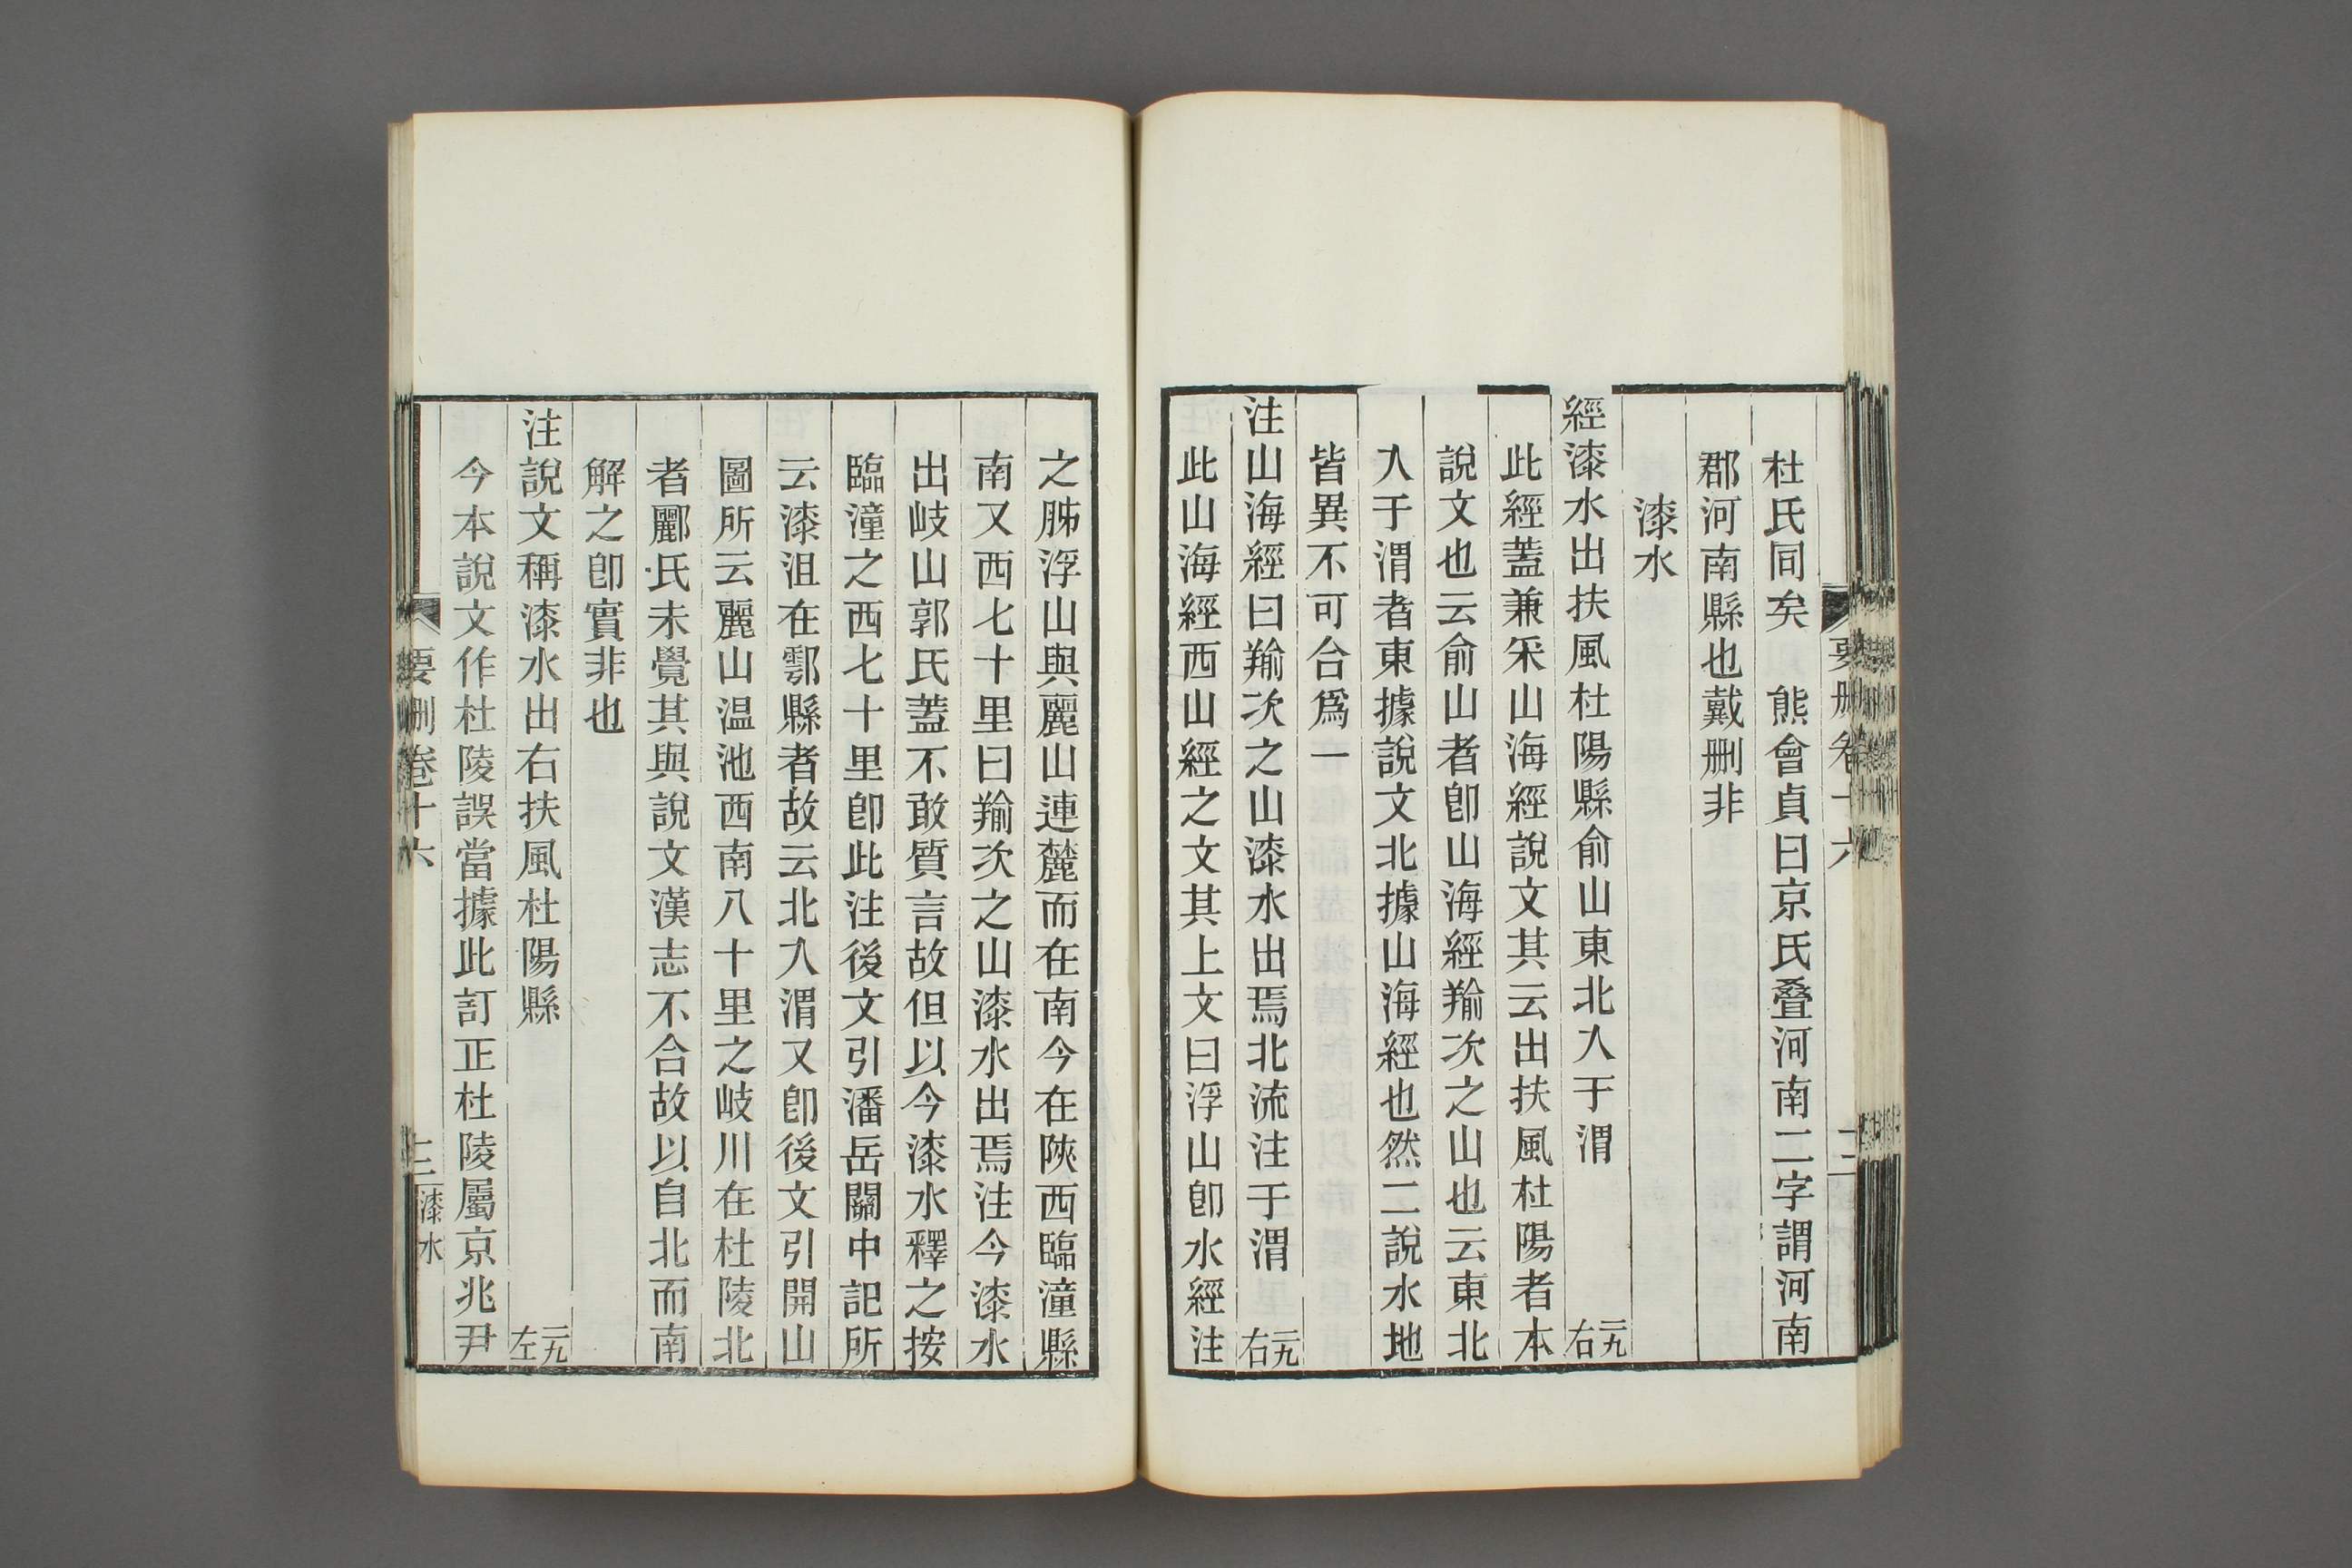 杜氏同矣　熊會貞曰京氏叠河南二字謂河南
郡河南縣也戴刪非
漆水
經漆水出扶風杜陽縣俞山東北入于渭　二九右
此經蓋兼采山海經說文其云出扶風杜陽者本
說文也云俞山者卽山海經羭次之山也云東北
入于渭者東據說文北據山海經也然二說水地
皆異不可合爲一
注山海經曰羭次之山漆水出焉北流注于渭　二九右
此山海經西山經之文其上文曰浮山卽水經注
要刪卷十六
之胏浮山與麗山連麓而在南今在陝西臨潼縣
南又西七十里曰羭次之山漆水出焉注今漆水
出岐山郭氏蓋不敢質言故但以今漆水釋之按
臨潼之西七十里卽此注後文引潘岳關中記所
云漆沮在鄠縣者故云北入渭又卽後文引開山
圖所云麗山温池西南八十里之岐川在杜陵北
者酈氏未覺其與說文漢志不合故以自北而南
解之卽實非也
注說文稱漆水出右扶風杜陽縣　二九左
今本說文作杜陵誤當據此訂正杜陵屬京兆尹
要刪卷十六
漆水